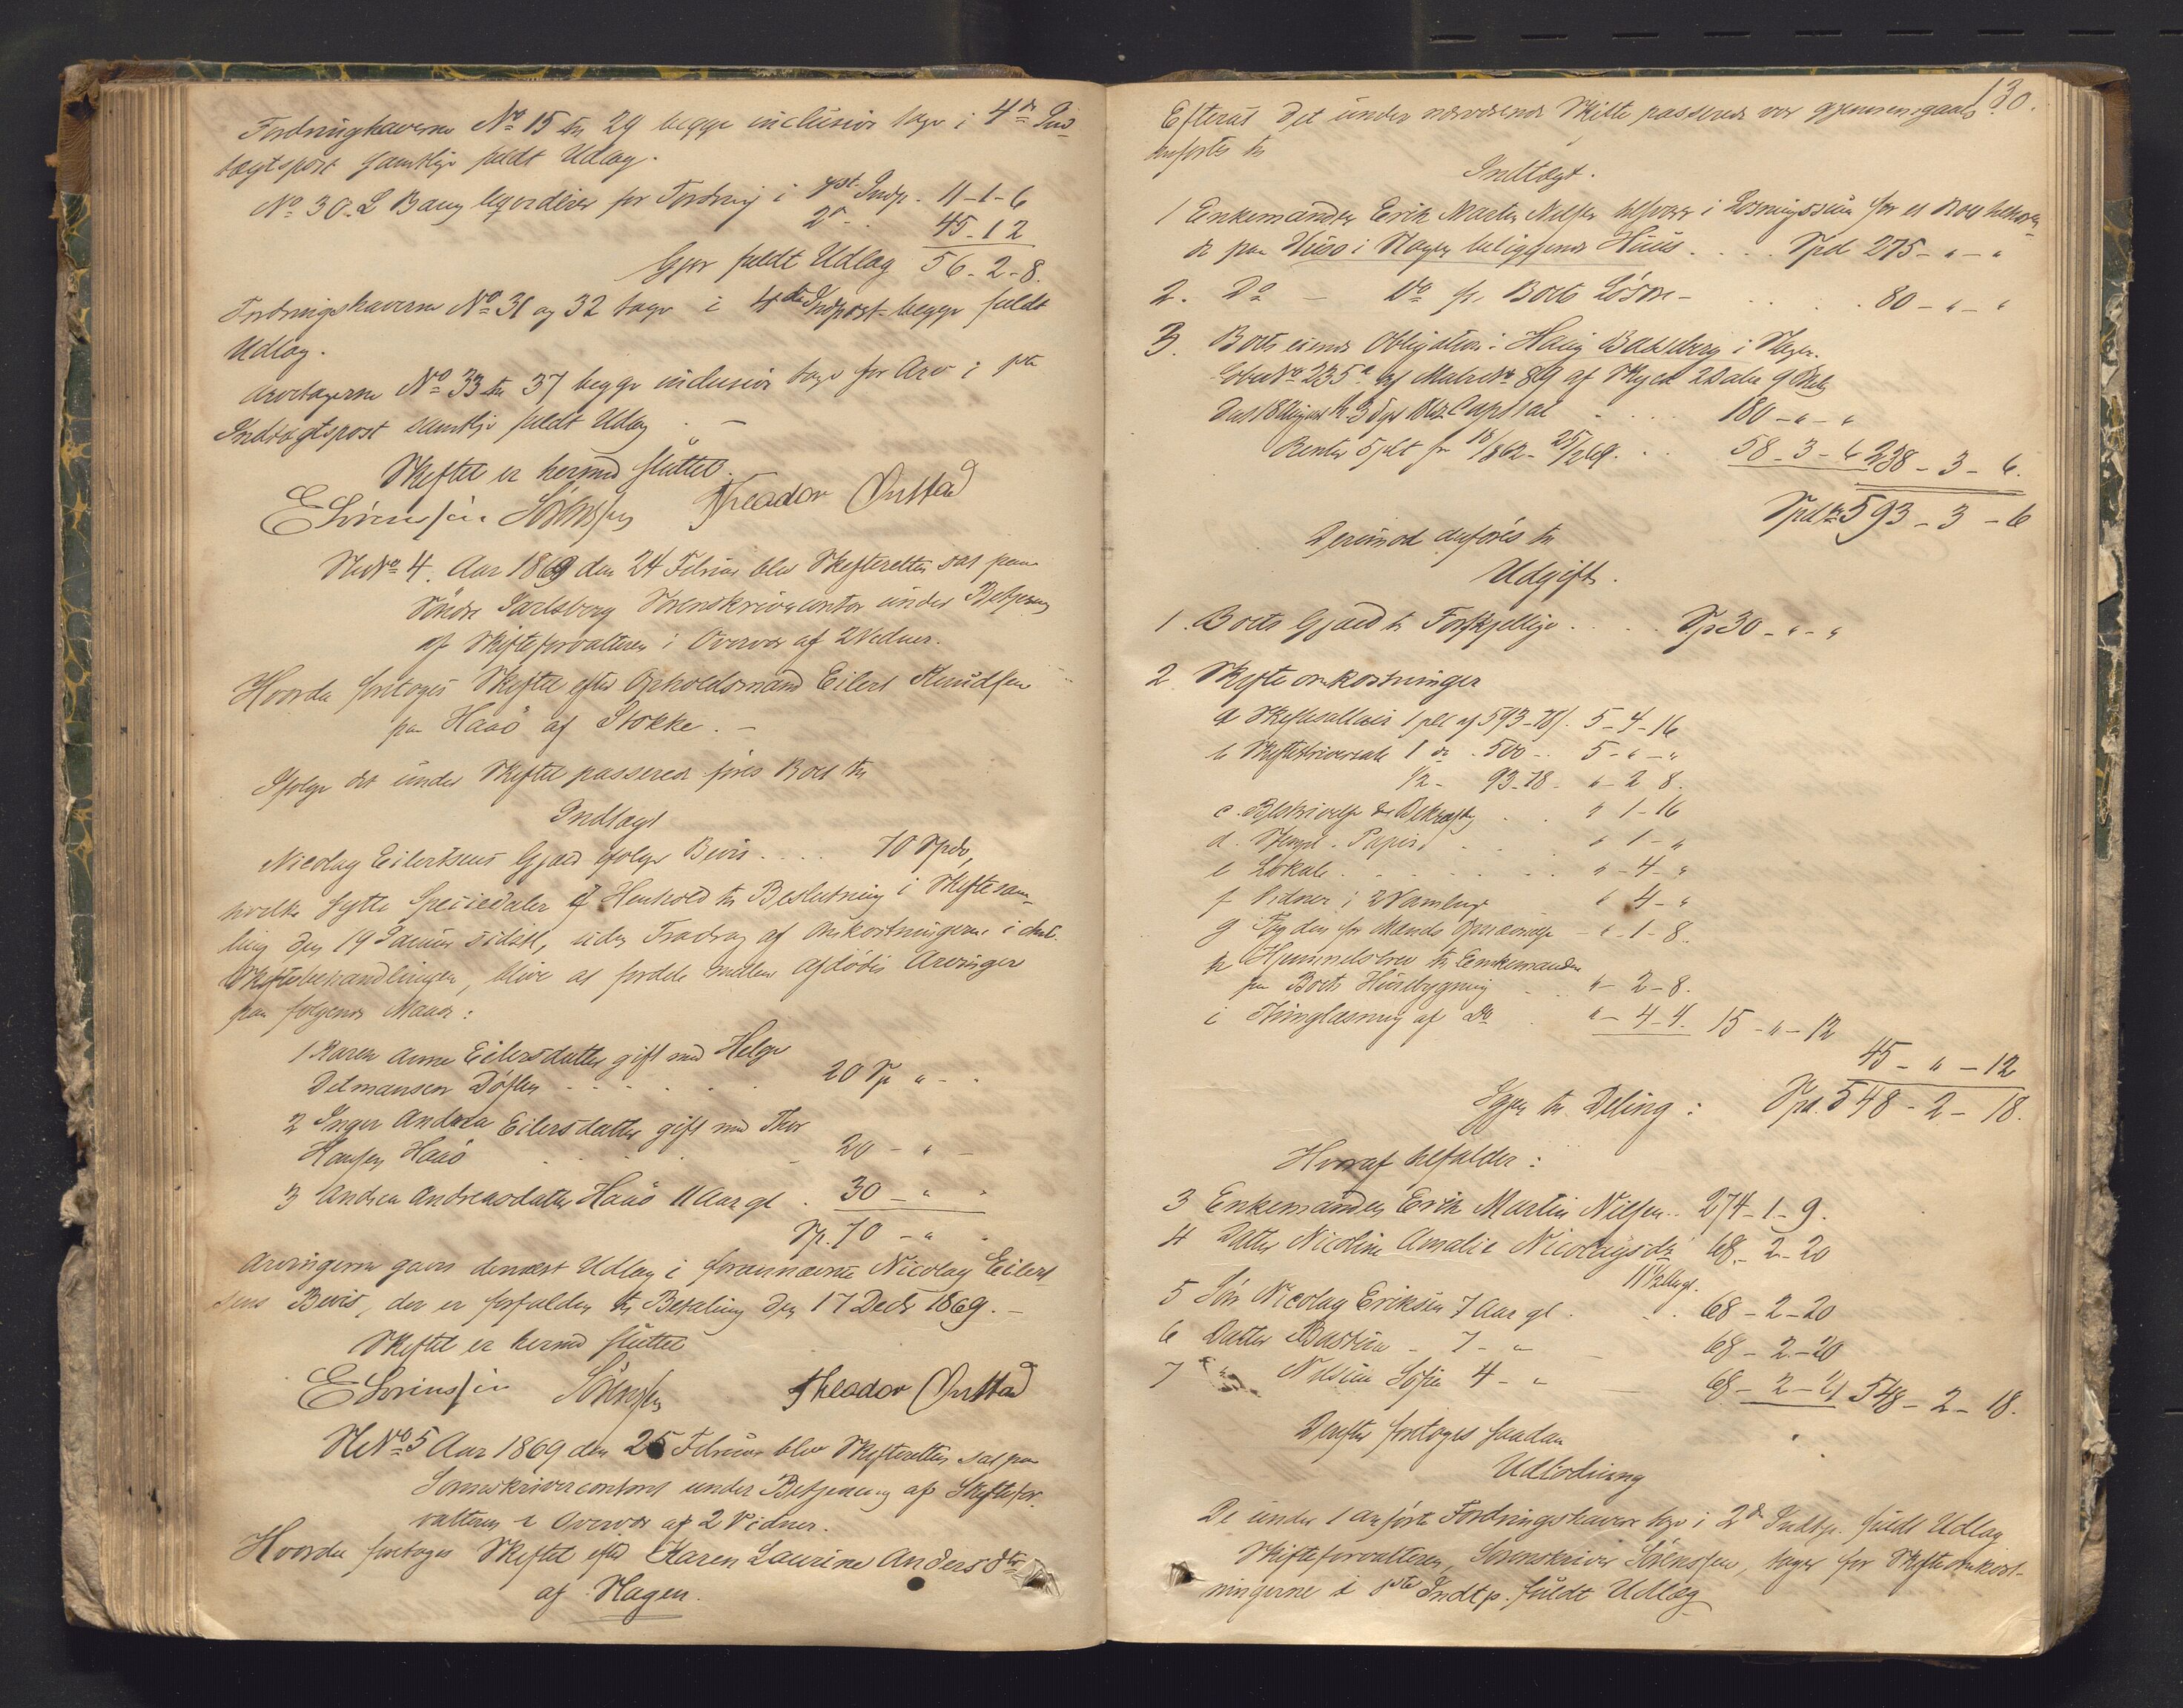 Fordringhaverne No 15 til 29 begge inclusive tage i 4de Ind-
tægtspost samtlige fuldt Udlæg.
No 30. L Baug ligesledes for Fordring i 1st Indp. 11-1-6
2den . 45-12
Gjør fuldt Udlæg 56-2-8.
Fordringshaverne No 31 og 32 tage i 4de Indpost begge fuldt
Udlæg.
Arvetagerne No 33 til 37 begge inclusive tage for Arv i 1ste
Indtægtspost samtlige fuldt Udlæg . –
Skiftet er hermed sluttet.
E Sørenssen Theodor Onstad
No 4. Aar 1869 den 24 Februar blev Skifteretten sat paa
Søndre Jarlsberg Sorenskrivercontor under Betjening
af Skifteforvalteren i Overvær af 2 Vidner.
Hvorda foretoges Skiftet efter Opholdsmand Eilert Knudsen
paa Haaø af Stokke. –
Ifølge det under Skiftet passerede føres Boet til
Indtægt
Nicolay Eilertsens Gjæld ifølge Bevis . . . . 70 Spdr,
hvilke sytti Speciedaler i Henhold til Beslutning i Skiftesam-
ling den 19 Januar sidstl, uden Fradrag af Omkostningerne i
Skiftebehandlingen, blive at fordele mellem Afdødes Arvinger
paa følgende Maade:
1 Karen Anne Eilersdatter gift med Helge
Detmansen Døslen . . . . . 20 Sp " - .
2 Inger Andrea Eilersdatter gift med Thor
Hansen Haaø . . . . . 20 - " -
3 Andrea Andreasdatter Haaø 11 Aar gl . 30 - " .
Sp. 70 - "
Arvingerne gaves dernæst Udlæg i forannævnte Nicolay Eilert
sens Bevis, der er forfalden til Betaling den 17 Decbr 1869. –
Skiftet er hermed sluttet
E Sørenssen Theodor Onstad
No 5 Aar 1869 den 25 Februar blev Skifteretten sat paa
Sorenskrivercontoret under Betjening af Skiftefor
valteren i Overvær af 2 Vidner.
Hvorda foretoges Skiftet efter Karen Laurine Andersdtr
af Hagen.
130.
Efterat det under nærværende Skifte passerede var gjennemgaaet
anføres til
Indtægt.
1 Enkemanden Erik Martin Nilsen tilsvarer i Løsningssum for et Boet tilhøren-
de paa Huseø i Hagen beliggende Huus . . . . Spd 275 - " - "
2. Do - Do for Boets Løsøre - . . . . 80 - " - "
3. Boets eiende Obligation i Haug Bakkeberg i Hagen.
Løbe No 235a af Matr No 89 af Skyld 2 Daler 9 Skill
Dat 18 August th. 3 Capital . . . . 180 - " - "
Renter 5 pCt fra 18/8 62 - 25/2 69 . . . 58-3-6 238-3-6.
Spd 593-3-6
Derimod anføres til
Udgift.
1. Boets Gjæld til Forskjellige . . . . . Sp 30 - " - "
2. Skifteomkostninger
a Skiftesallair 1 pCt af 593-78/. 5-4-16
b Skifteskriversalr 1 do . 500 - . 5 - " - "
1/2 - 93-78 - " - 2 8.
c. Beskrivelse & Bekræftg . . " 1-16
d. Stempl. Papir . . . " 1 - "
e Lokale . . . . . . . " - 4 - "
f Vidner i 2 Samlinger " 4 - "
g Fogden for Mands Opnævnelse - " - 1-8.
h Hjemmelsbrev til Enkemanden
paa Boets Huusbygning . . " - 2-8.
i Thinglæsning af Do . " - 4-4. 15 - " - 12
45 - " - 12
Igjen til Deling: Spd. 548-2-18.
Hvoraf tilfalder:
3 Enkemanden Erik Martin Nilsen . . 274-1-9.
4 Datter Nicoline Amalie Nicolaysdr 68-2-20
11 1/2 Aar gl.
5 Søn Nicolay Eriksen 7 Aar gl . . . 68-2-20
6 Datter Bastine - 7 - " - 68-2-20
7 " Nilsine Sofie 4 - " - 68-2-21 548-2-18.
Derefter foretoges saadan
Udlodning
De under 1 anførte Fordringshavere tage i 2de Indtp. fuldt Udlæg
Skifteforvalteren, Sorenskriver Sørenssen, tager for Skifteomkost-
ningerne i 1ste Indtp. fuldt Udlæg